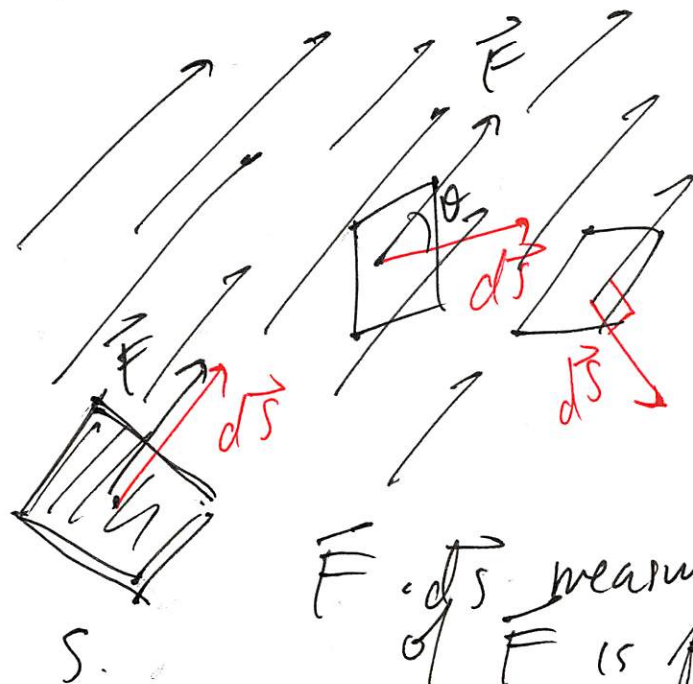 F⃗
θ
dS⃗
F⃗
dS⃗
dS⃗
F⃗ · dS⃗ measu
S. of F⃗ is